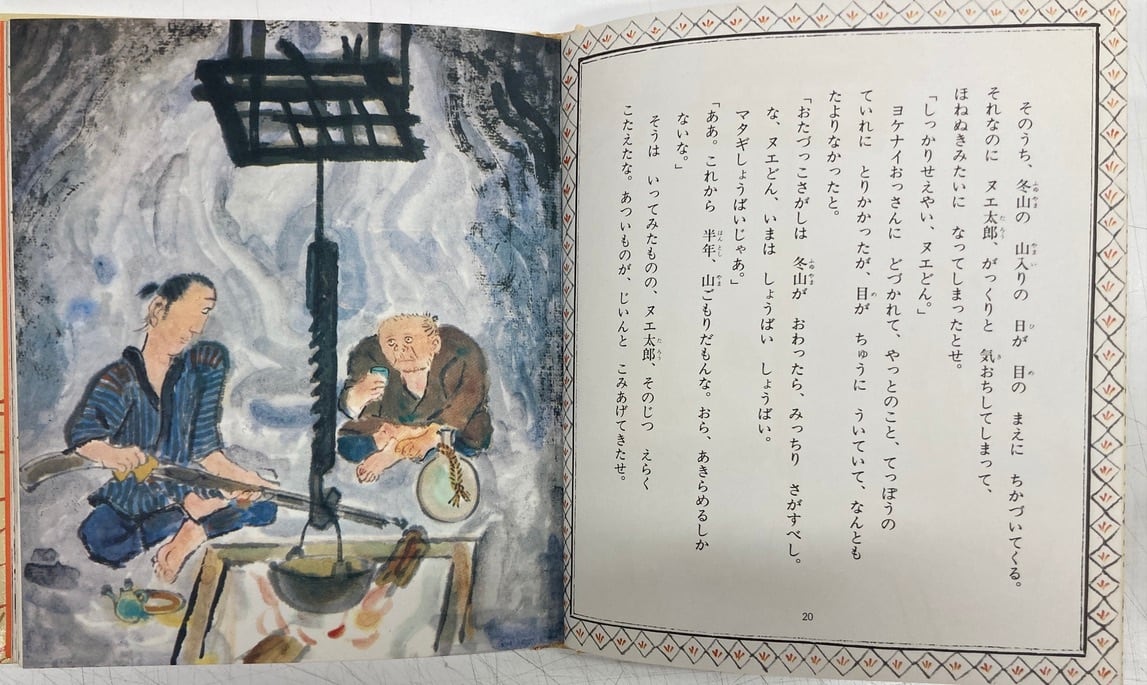 そのうち、冬山の　山入りの　日が　目の　まえに　ちかづいてくる。
それなのに　ヌエ太郎、がっくりと　気おちしてしまって、
ほねぬきみたいに　なってしまったとせ。
「しっかりせえやい、ヌエどん。」
ヨケナイおっさんに　どづかれて、やっとのこと、てっぽうの
ていれに　とりかかったが、目が　ちゅうに　ういていて、なんとも
たよりなかったと。
「おたづっこさがしは　冬山が　おわったら、みっちり　さがすべし。
な、ヌエどん、いまは　しょうばい　しょうばい。
マタギしょうばいじゃあ。」
「ああ。これから　半年、山ごもりだもんな。おら、あきらめるしか
ないな。」
そうは　いってみたものの、ヌエ太郎、そのじつ　えらく
こたえたな。あついものが、じいんと　こみあげてきたせ。
20